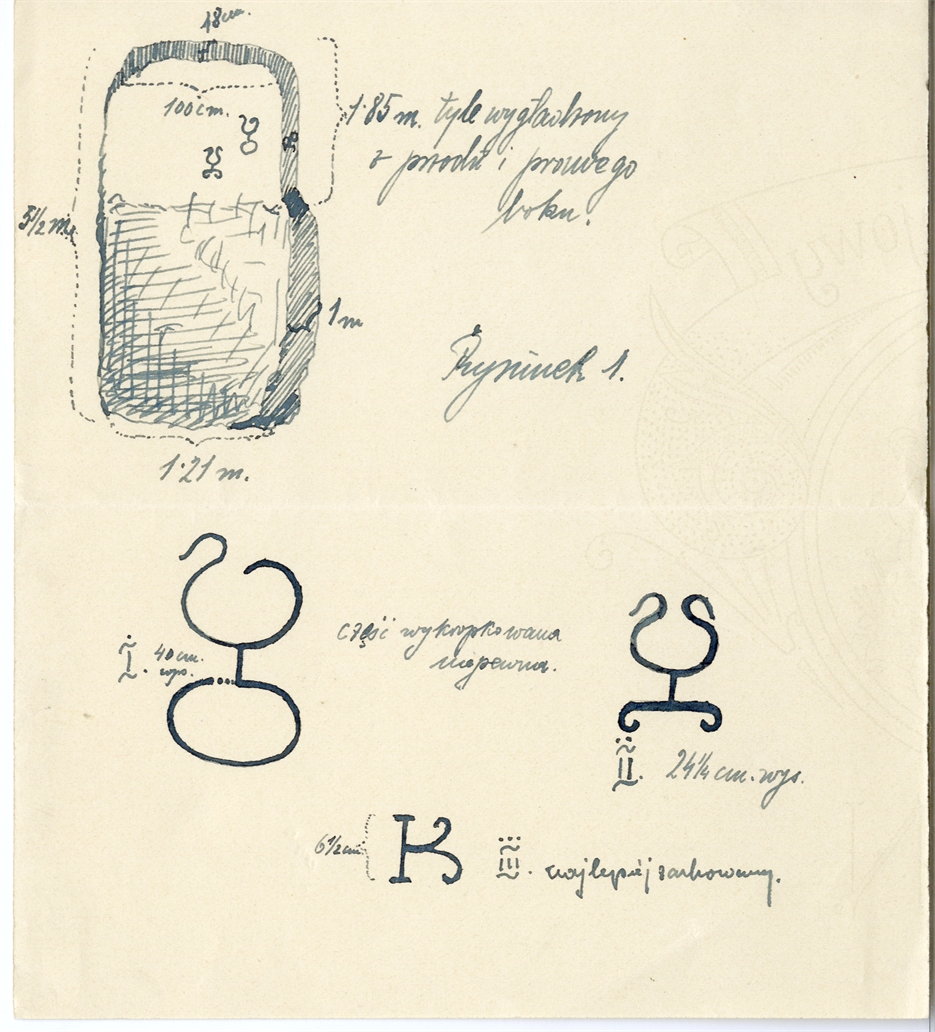 48 cm.
100 cm.
1·85 m. tyle wygładzony
z przodu i prawego
boku.
5½ m.
1 m
Rysunek 1.
1·21 m.
część wykropkowana
niepewna.
I. 40 cm.
wys.
II. 24¼ cm. wys.
6½ cm
K
III. najlepiej zachowany.